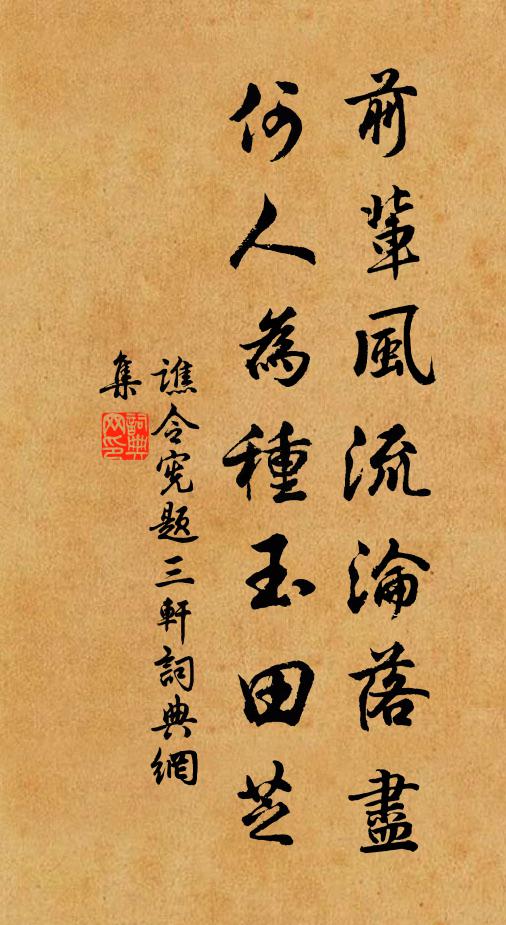 前輩風流淪落盡
何人為種玉田芝
譙令宪題三軒詞典網
集
詞典
网印